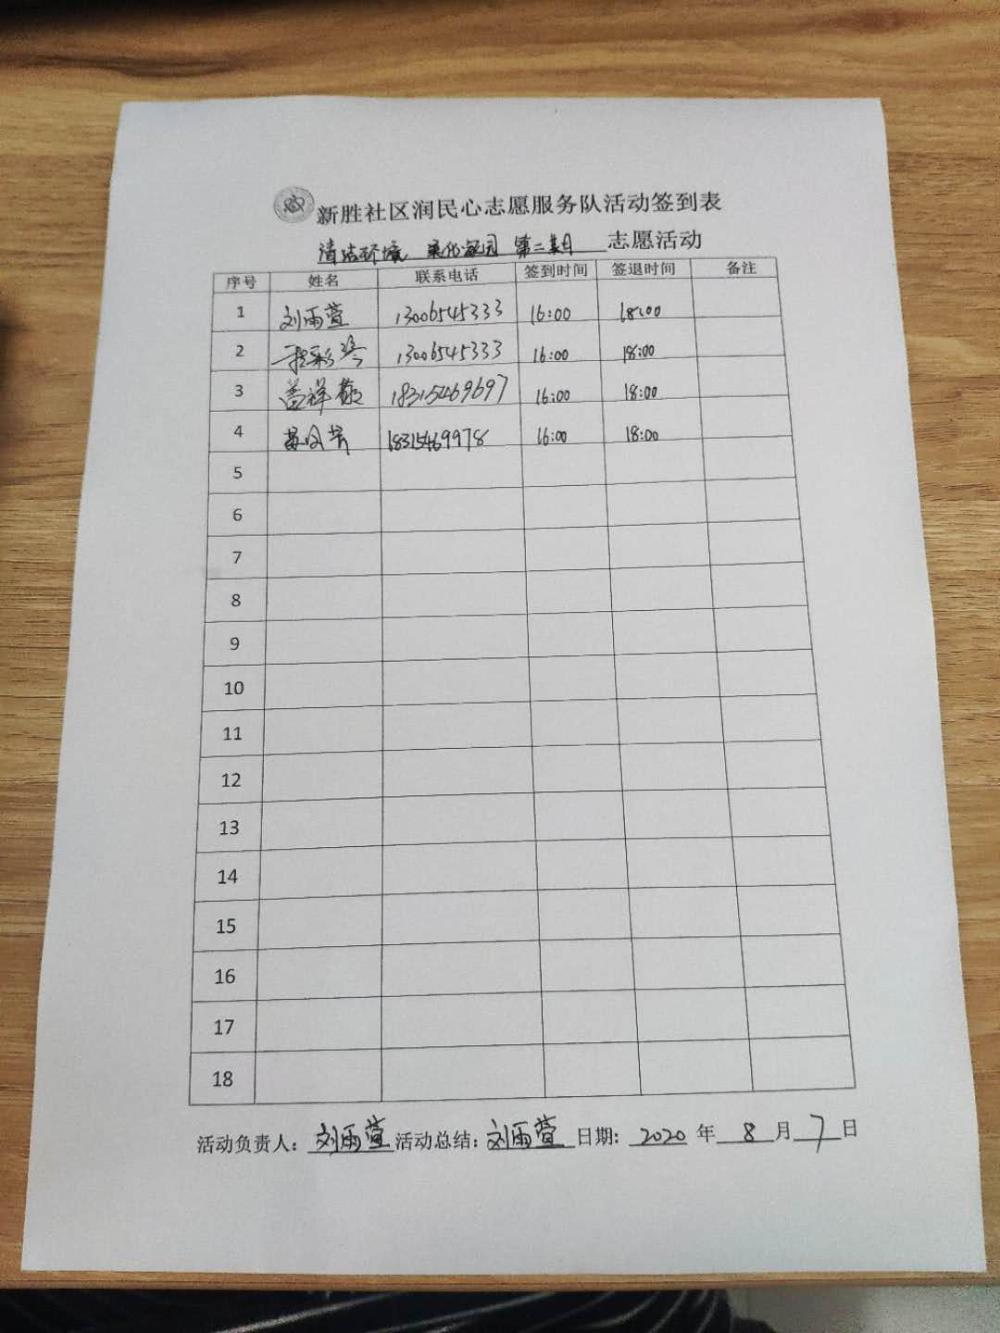 新胜社区润民心志愿服务队活动签到表
清洁环境 美化家园 第二集日 志愿活动
序号 姓名 联系电话 签到时间 签退时间 备注
1 刘雨萱 13006545333 16:00 18:00
2 13006545333 16:00 18:00
3 盖祥敬 18315469697 16:00 18:00
4 18315469978 16:00 18:00
5
6
7
8
9
10
11
12
13
14
15
16
17
18
活动负责人: 刘雨萱 活动总结: 刘雨萱 日期: 2020 年 8 月 7 日